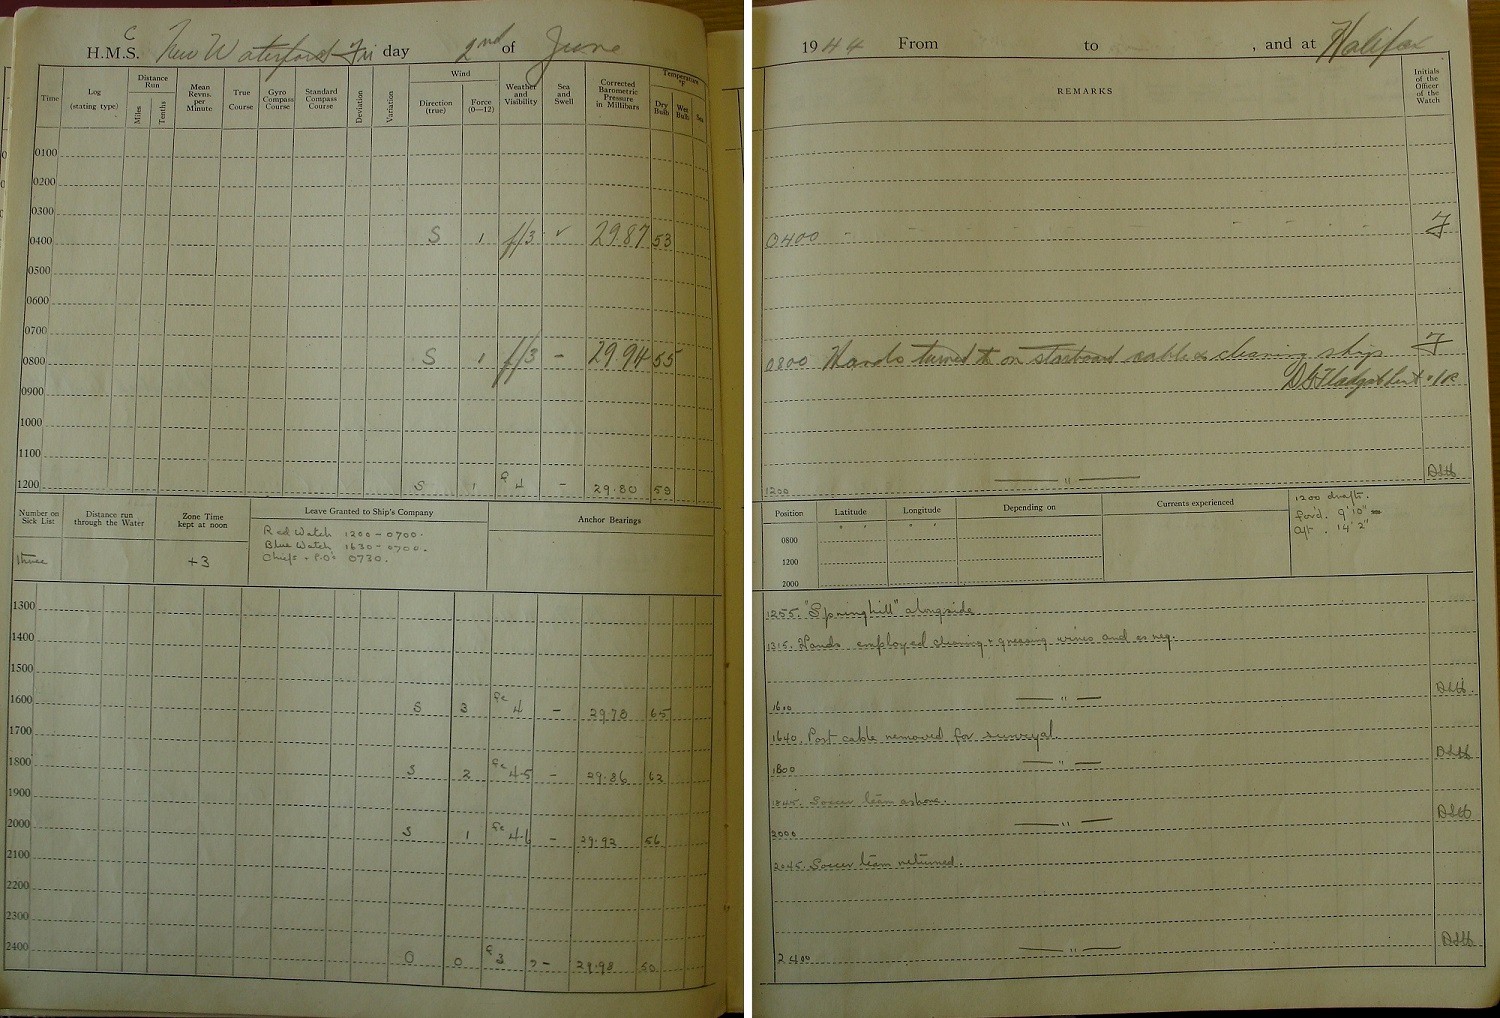 H.M.C.S. New Waterford Friday 2nd of June
Time
Log
(stating type)
Distance
Run
Miles
Tenths
Mean
Revns.
per
Minute
True
Course
Gyro
Compass
Course
Standard
Compass
Course
Deviation
Variation
Wind
Direction
(true)
Force
(0—12)
Weather
and
Visibility
Sea
and
Swell
Corrected
Barometric
Pressure
in Millibars
Temperature
°F
Dry
Bulb
Wet
Bulb
Sea
0100
0200
0300
0400 S 1 f/3 ✓ 29.87 53
0500
0600
0700
0800 S 1 f/3 - 29.94 55
0900
1000
1100
1200 S 1 4 - 29.80 59
Number on
Sick List
Distance run
through the Water
Zone Time
kept at noon
Leave Granted to Ship's Company
Anchor Bearings
three
+3
Red Watch 1200-0700.
Blue Watch 1630-0700.
Chiefs + P.O's 0730.
1300
1400
1500
1600 S 3 fc 4 - 29.78 65
1700
1800 S 2 fc 4-5 - 29.86 62
1900
2000 S 1 fc 4-6 - 29.92 56
2100
2200
2300
2400 0 0 3 - 29.98 50
1944 From to , and at Halifax
REMARKS
Initials
of the
Officer
of the
Watch
0400 - - -
0800 Hands turned to on starboard cable & cleaning ship
1200 — " — DSH
Position
Latitude
Longitude
Depending on
Currents experienced
0800
1200
2000
1200 drafts.
for'd. 9' 10"
aft. 14' 2"
1255. "Springhill" alongside
1315. Hands employed cleaning & greasing wires and as req.
1600 — " — DSH.
1640. Port cable removed for surveyal.
1800 — " — DSH
1845. Soccer team ashore.
2000 — " — DSH
2045. Soccer team returned.
2400 — " — DSH